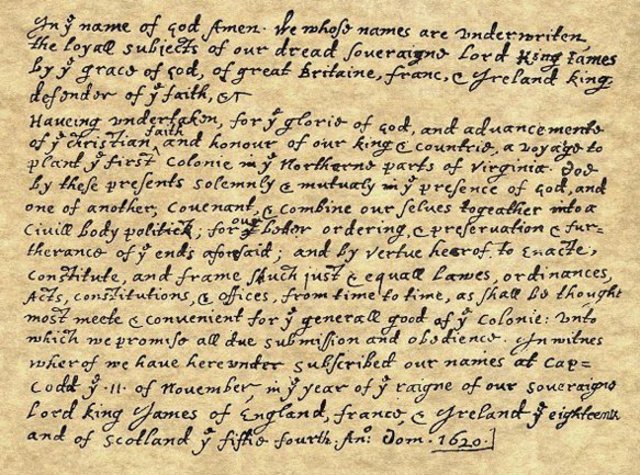 In yͤ name of God Amen. We whose names are underwriten,
the loyall subjects of our dread soveraigne Lord King James
by yͤ grace of God, of great Britaine, franc, & Ireland king,
defender of yͤ faith, &c
Haveing undertaken, for yͤ glorie of God, and advancemente
of yͤ christian faith and honour of our king & countrie, a voyage to
plant yͤ first colonie in yͤ Northerne parts of Virginia. Doe
by these presents solemnly & mutualy in yͤ presence of God, and
one of another, covenant, & combine our selves togeather into a
Civill body politick; for our better ordering, & preservation & fur=
therance of yͤ ends aforesaid; and by vertue hearof to enacte,
constitute, and frame shuch just & equall lawes, ordinances,
Acts, constitutions, & offices, from time to time, as shall be thought
most meete & convenient for yͤ generall good of yͤ colonie: unto
which we promise all due submission and obedience. In witnes
wherof we have hereunder subscribed our names at Cap=
Codd yͤ ·11· of November, in yͤ year of yͤ raigne of our soveraigne
Lord king James of England, france, & Ireland yͤ eighteenth
and of Scotland yͤ fiftie fourth. Anº: Dom. 1620.